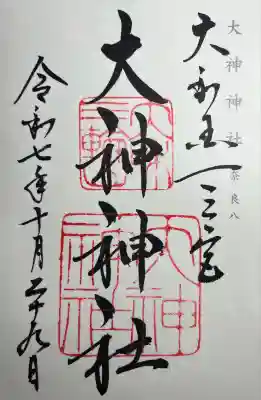 大神神社 奈良八
大和国一之宮
大神神社
令和七年十月二十九日
大神神社